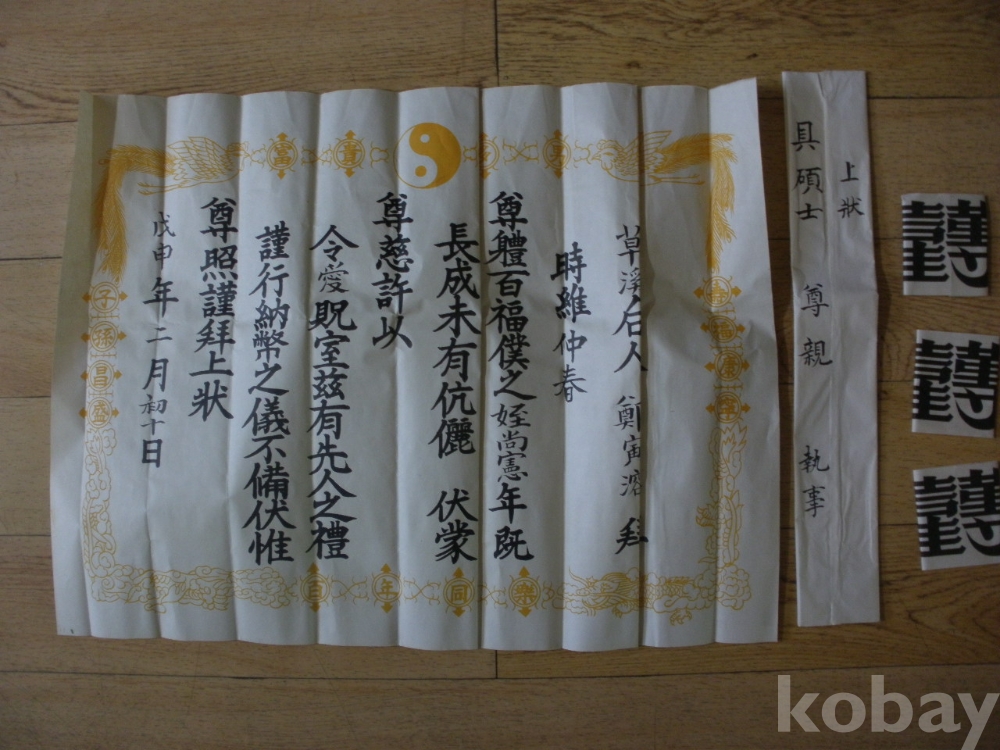 上狀
具碩士 尊親 執事
草溪后人 鄭寅溶 拜
時維仲春
尊體百福僕之姪尚憲年既
長成未有伉儷 伏蒙
尊慈許以
令愛貺室玆有先人之禮
謹行納幣之儀不備伏惟
尊照謹拜上狀
戊申年二月初十日
富貴多男
壽福康寧
子孫昌盛
百年同樂
謹
謹
謹
kobay